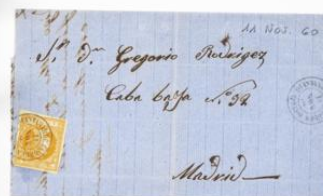 11 NOV. 60
Sr. Dn. Gregorio Rodrigez
Caba baja Nº 32
Madrid